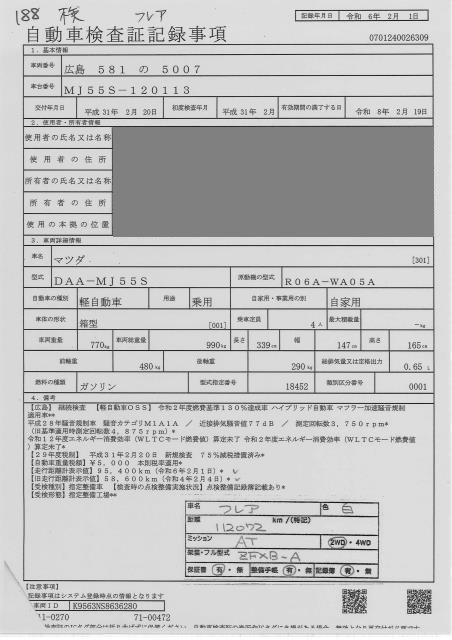 188 検 フレア
記録年月日 令和 6年 2月 1日
自動車検査証記録事項
0701240026309
1．基本情報
車両番号 広島 581 の 5007
車台番号 MJ55S－120113
交付年月日 平成 31年 2月 20日 初度検査年月 平成 31年 2月 有効期間の満了する日 令和 8年 2月 19日
2．使用者・所有者情報
使用者の氏名又は名称
使用者の住所
所有者の氏名又は名称
所有者の住所
使用の本拠の位置
3．車両詳細情報
車名 マツダ [301]
型式 DAA－MJ55S 原動機の型式 R06A－WA05A
自動車の種別 軽自動車 用途 乗用 自家用・事業用の別 自家用
車体の形状 箱型 [001] 乗車定員 4人 最大積載量 －kg
車両重量 770kg 車両総重量 990kg 長さ 339cm 幅 147cm 高さ 165cm
前軸重 480kg 後軸重 290kg 総排気量又は定格出力 0.65 L
燃料の種類 ガソリン 型式指定番号 18452 類別区分番号 0001
4．備考
【広島】 継続検査 【軽自動車OSS】 令和2年度燃費基準130％達成車 ハイブリッド自動車 マフラー加速騒音規制
適用車**
平成28年騒音規制車 騒音カテゴリM1A1A ／ 近接排気騒音値77dB ／ 測定回転数3，750rpm*
(旧基準適用時測定回転数4，875rpm)*
令和12年度エネルギー消費効率（WLTCモード燃費値）算定未了 令和2年度エネルギー消費効率（WLTCモード燃費値
）算定未了*
【29年度税制】 平成31年2月20日 新規検査 75％減税措置済み*
【自動車重量税額】￥5，000 本則税率適用*
【走行距離計表示値】95，400km（令和6年2月1日）*
【旧走行距離計表示値】58，600km（令和4年2月4日）*
【受検種別】指定整備車 【検査時の点検整備実施状況】点検整備記録簿記載あり*
【受検形態】指定整備工場**
車名 フレア 色 白
距離 112072 km/(特記)
ミッション AT 2WD・4WD
架装・フル型式 ZFXB-A
保証書 有・無 整備手帳 有・無 記録簿 有・無
【注意事項】
記録事項はシステム登録時点の情報となります
車両ID K9563NS8636280
11-0270 71-00472